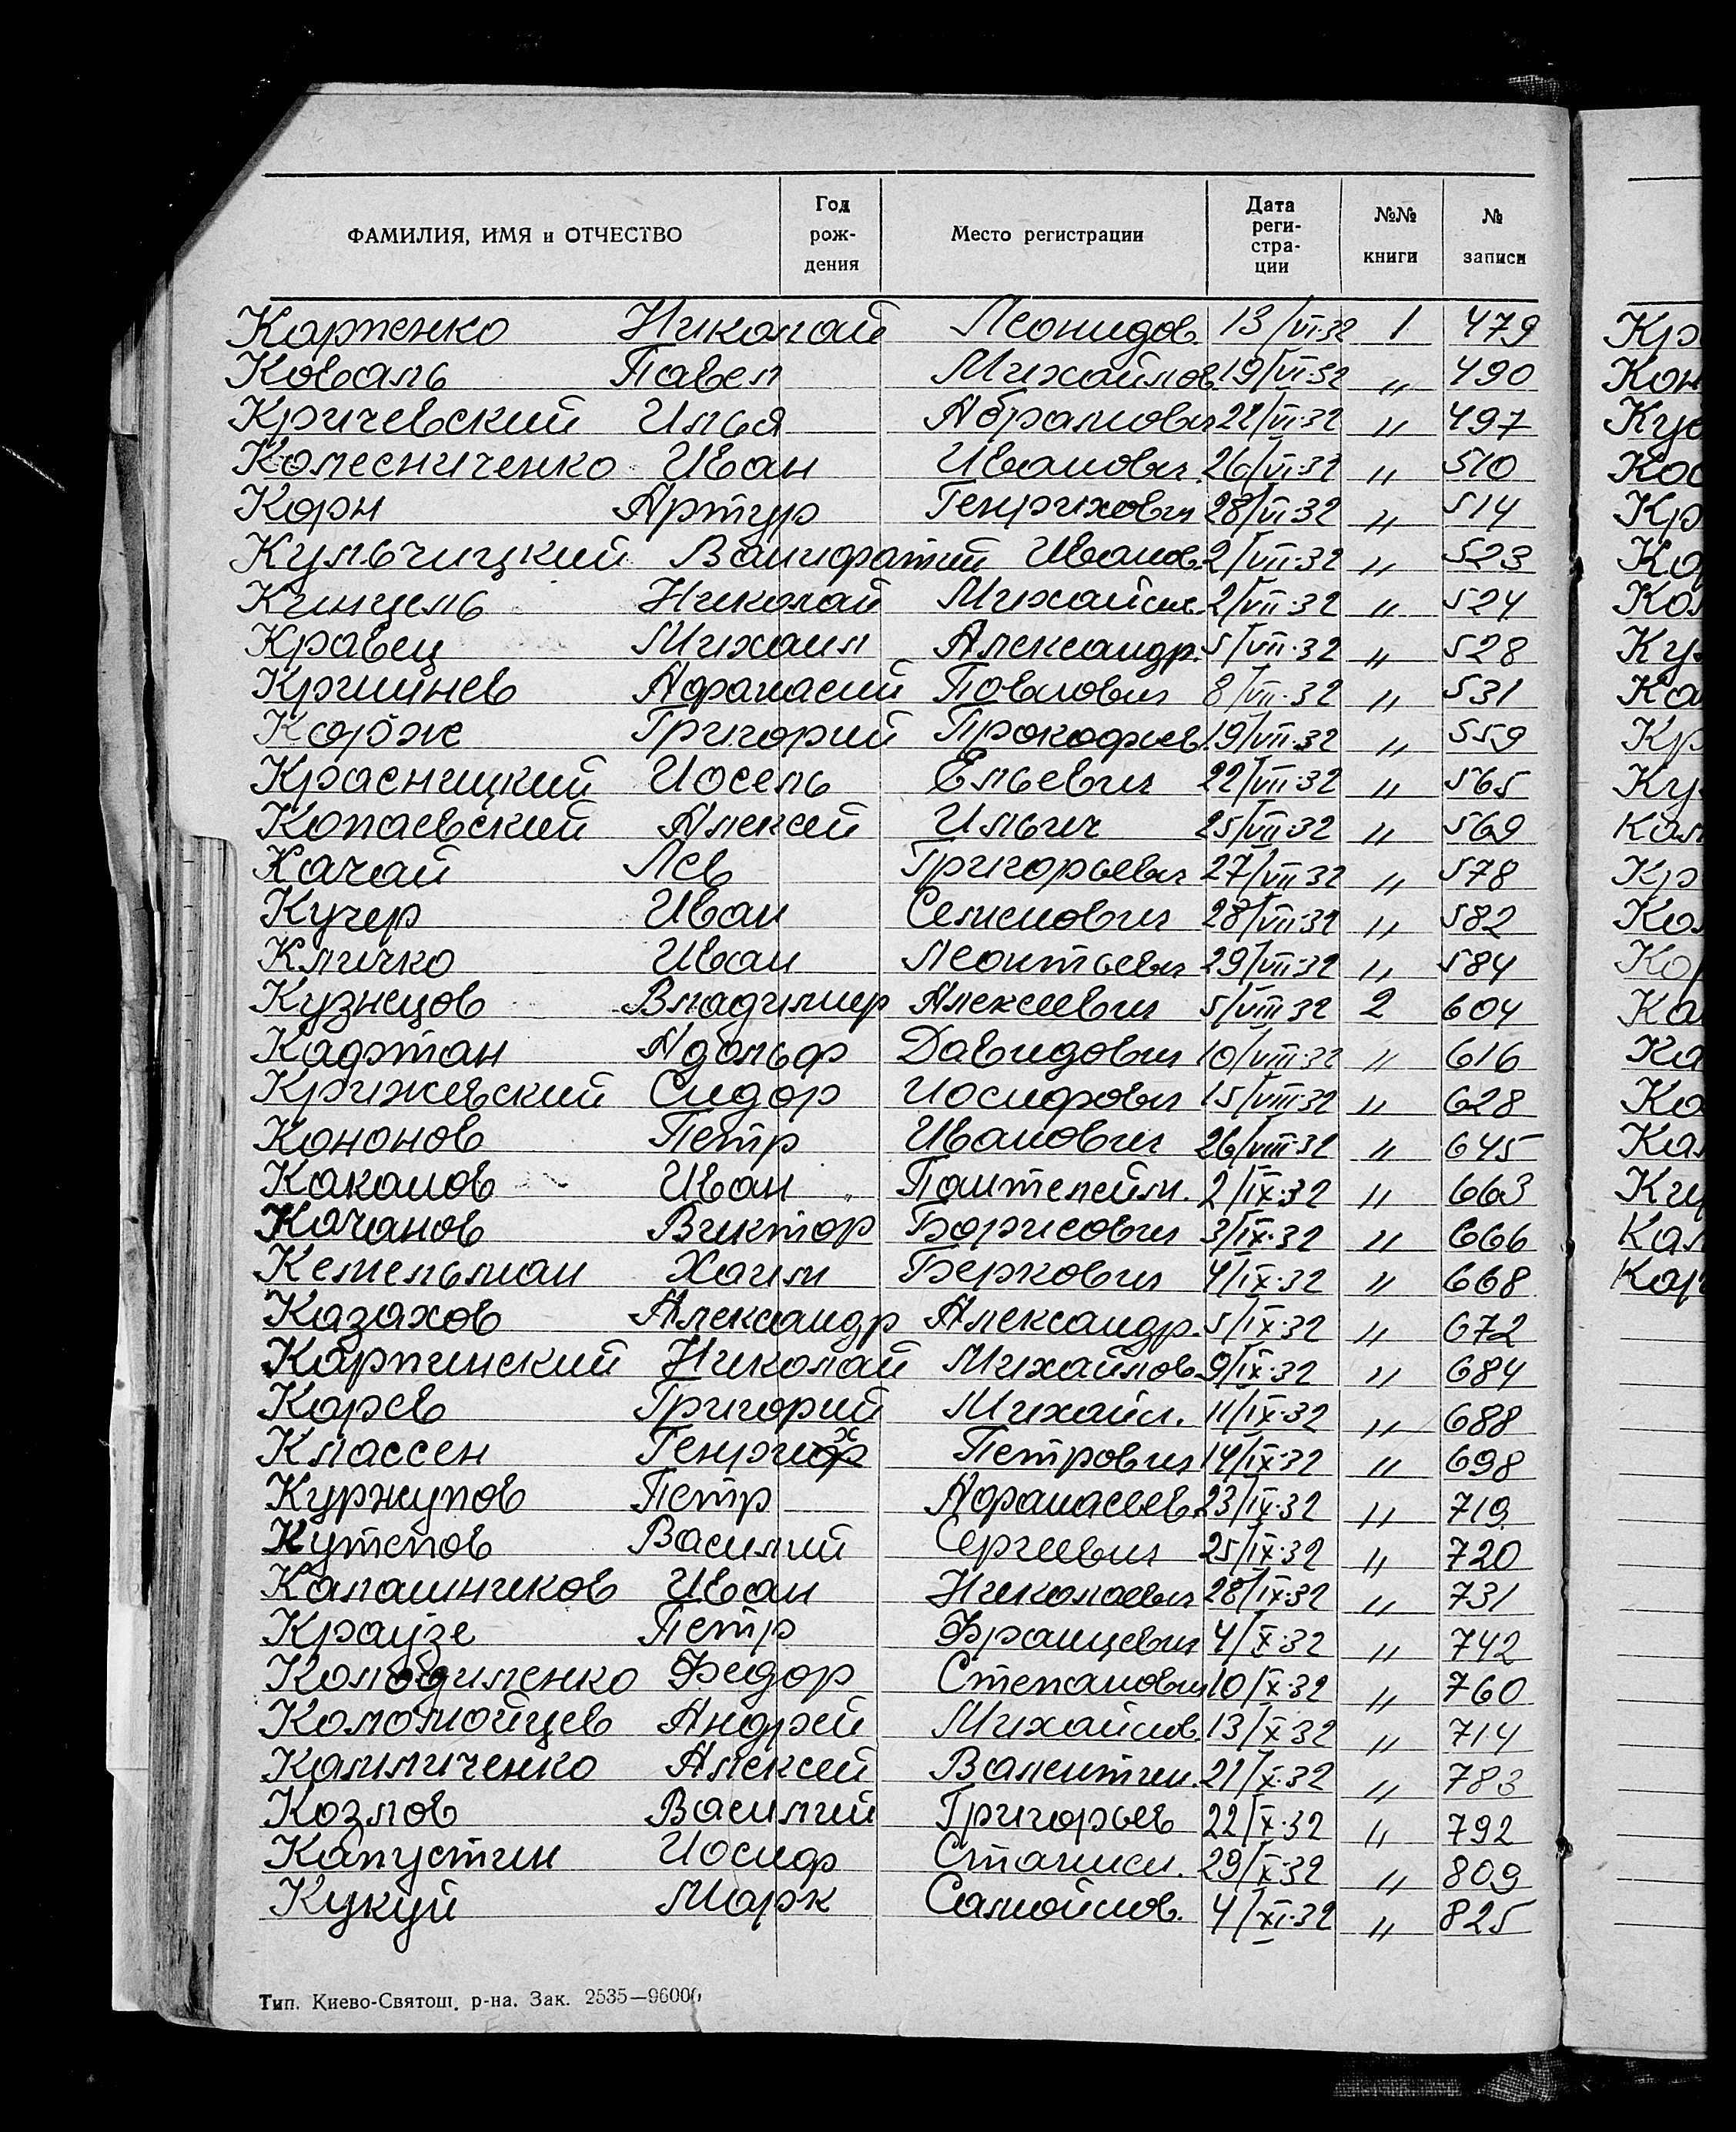 ФАМИЛИЯ, ИМЯ и ОТЧЕСТВО Год рож- дения Место регистрации Дата реги- стра- ции №№ книги № записи
Карпенко Николай Леонидов. 13/VI-32 1 479
Коваль Павел Михайлов. 19/VI-32 " 490
Кричевский Илья Абрамович 22/VI-32 " 497
Колесниченко Иван Иванович 26/VI-32 " 510
Корн Артур Генрихович 28/VI-32 " 514
Кульчицкий Ванифатий Иванов. 2/VII-32 " 523
Кинцель Николай Михайл. 2/VII-32 " 524
Кравец Михаил Александр. 5/VII-32 " 528
Кришнев Афанасий Павлович 8/VII-32 " 531
Корж Григорий Прокофьев. 19/VII-32 " 559
Красницкий Иосель Ельевич 22/VII-32 " 565
Копаевский Алексей Ильич 25/VII-32 " 569
Качай Лев Григорьевич 27/VII-32 " 578
Кучер Иван Семенович 28/VII-32 " 582
Кличко Иван Леонтьевич 29/VII-32 " 584
Кузнецов Владимир Алексеевич 5/VIII-32 2 604
Кафтан Адольф Давидович 10/VIII-32 " 616
Крижевский Сидор Иосифович 15/VIII-32 " 628
Кононов Петр Иванович 26/VIII-32 " 645
Каканов Иван Пантелейм. 2/IX-32 " 663
Качанов Виктор Борисович 3/IX-32 " 666
Кемельман Хаим Беркович 4/IX-32 " 668
Казахов Александр Александр. 5/IX-32 " 672
Карпинский Николай Михайлов. 9/IX-32 " 684
Карев Григорий Михайл. 11/IX-32 " 688
Классен Генрих Петрович 14/IX-32 " 698
Куржупов Петр Афанасьев. 23/IX-32 " 719
Кутепов Василий Сергеевич 25/IX-32 " 720
Калашников Иван Николаевич 28/IX-32 " 731
Краузе Петр Францевич 4/X-32 " 742
Федор Степанович 10/X-32 " 760
Коломойцев Андрей Михайлов. 13/X-32 " 714
Калмиченко Алексей Валентин. 21/X-32 " 783
Козлов Василий Григорьев 22/X-32 " 792
Капустин Иосиф Станисл. 29/X-32 " 809
Кукуй Марк Самойлов. 4/XI-32 " 825
Тип. Киево-Святош. р-на. Зак. 2535—96000
Кр
Кон
Ко
Кр
Ко
Ку
Ка
Кр
Ку
Кал
Кр
Кол
Кор
Ка
Ка
Ко
Кал
Ки
Кал
Кар